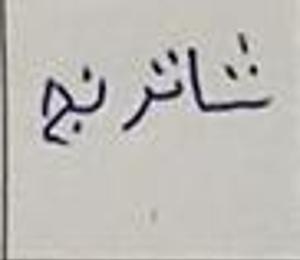 شاترنج